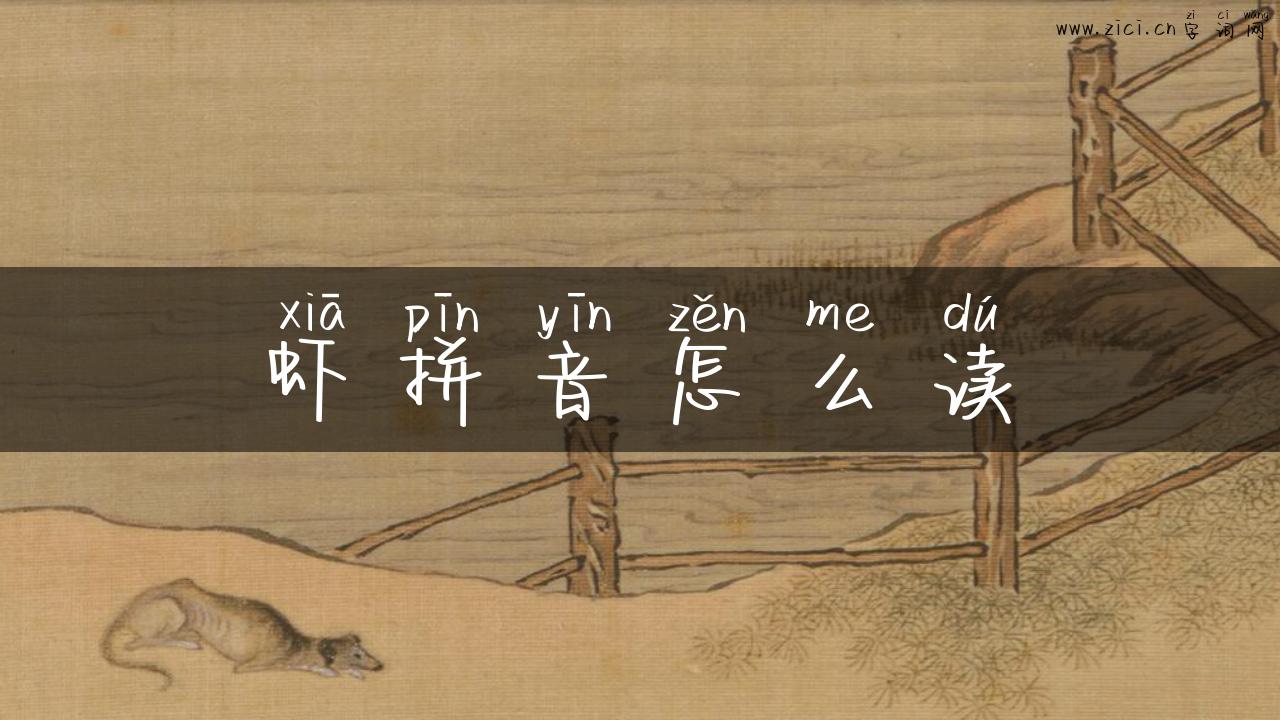 zì cí wǎng
www.zici.cn 字词网
xiā pīn yīn zěn me dú
虾拼音怎么读